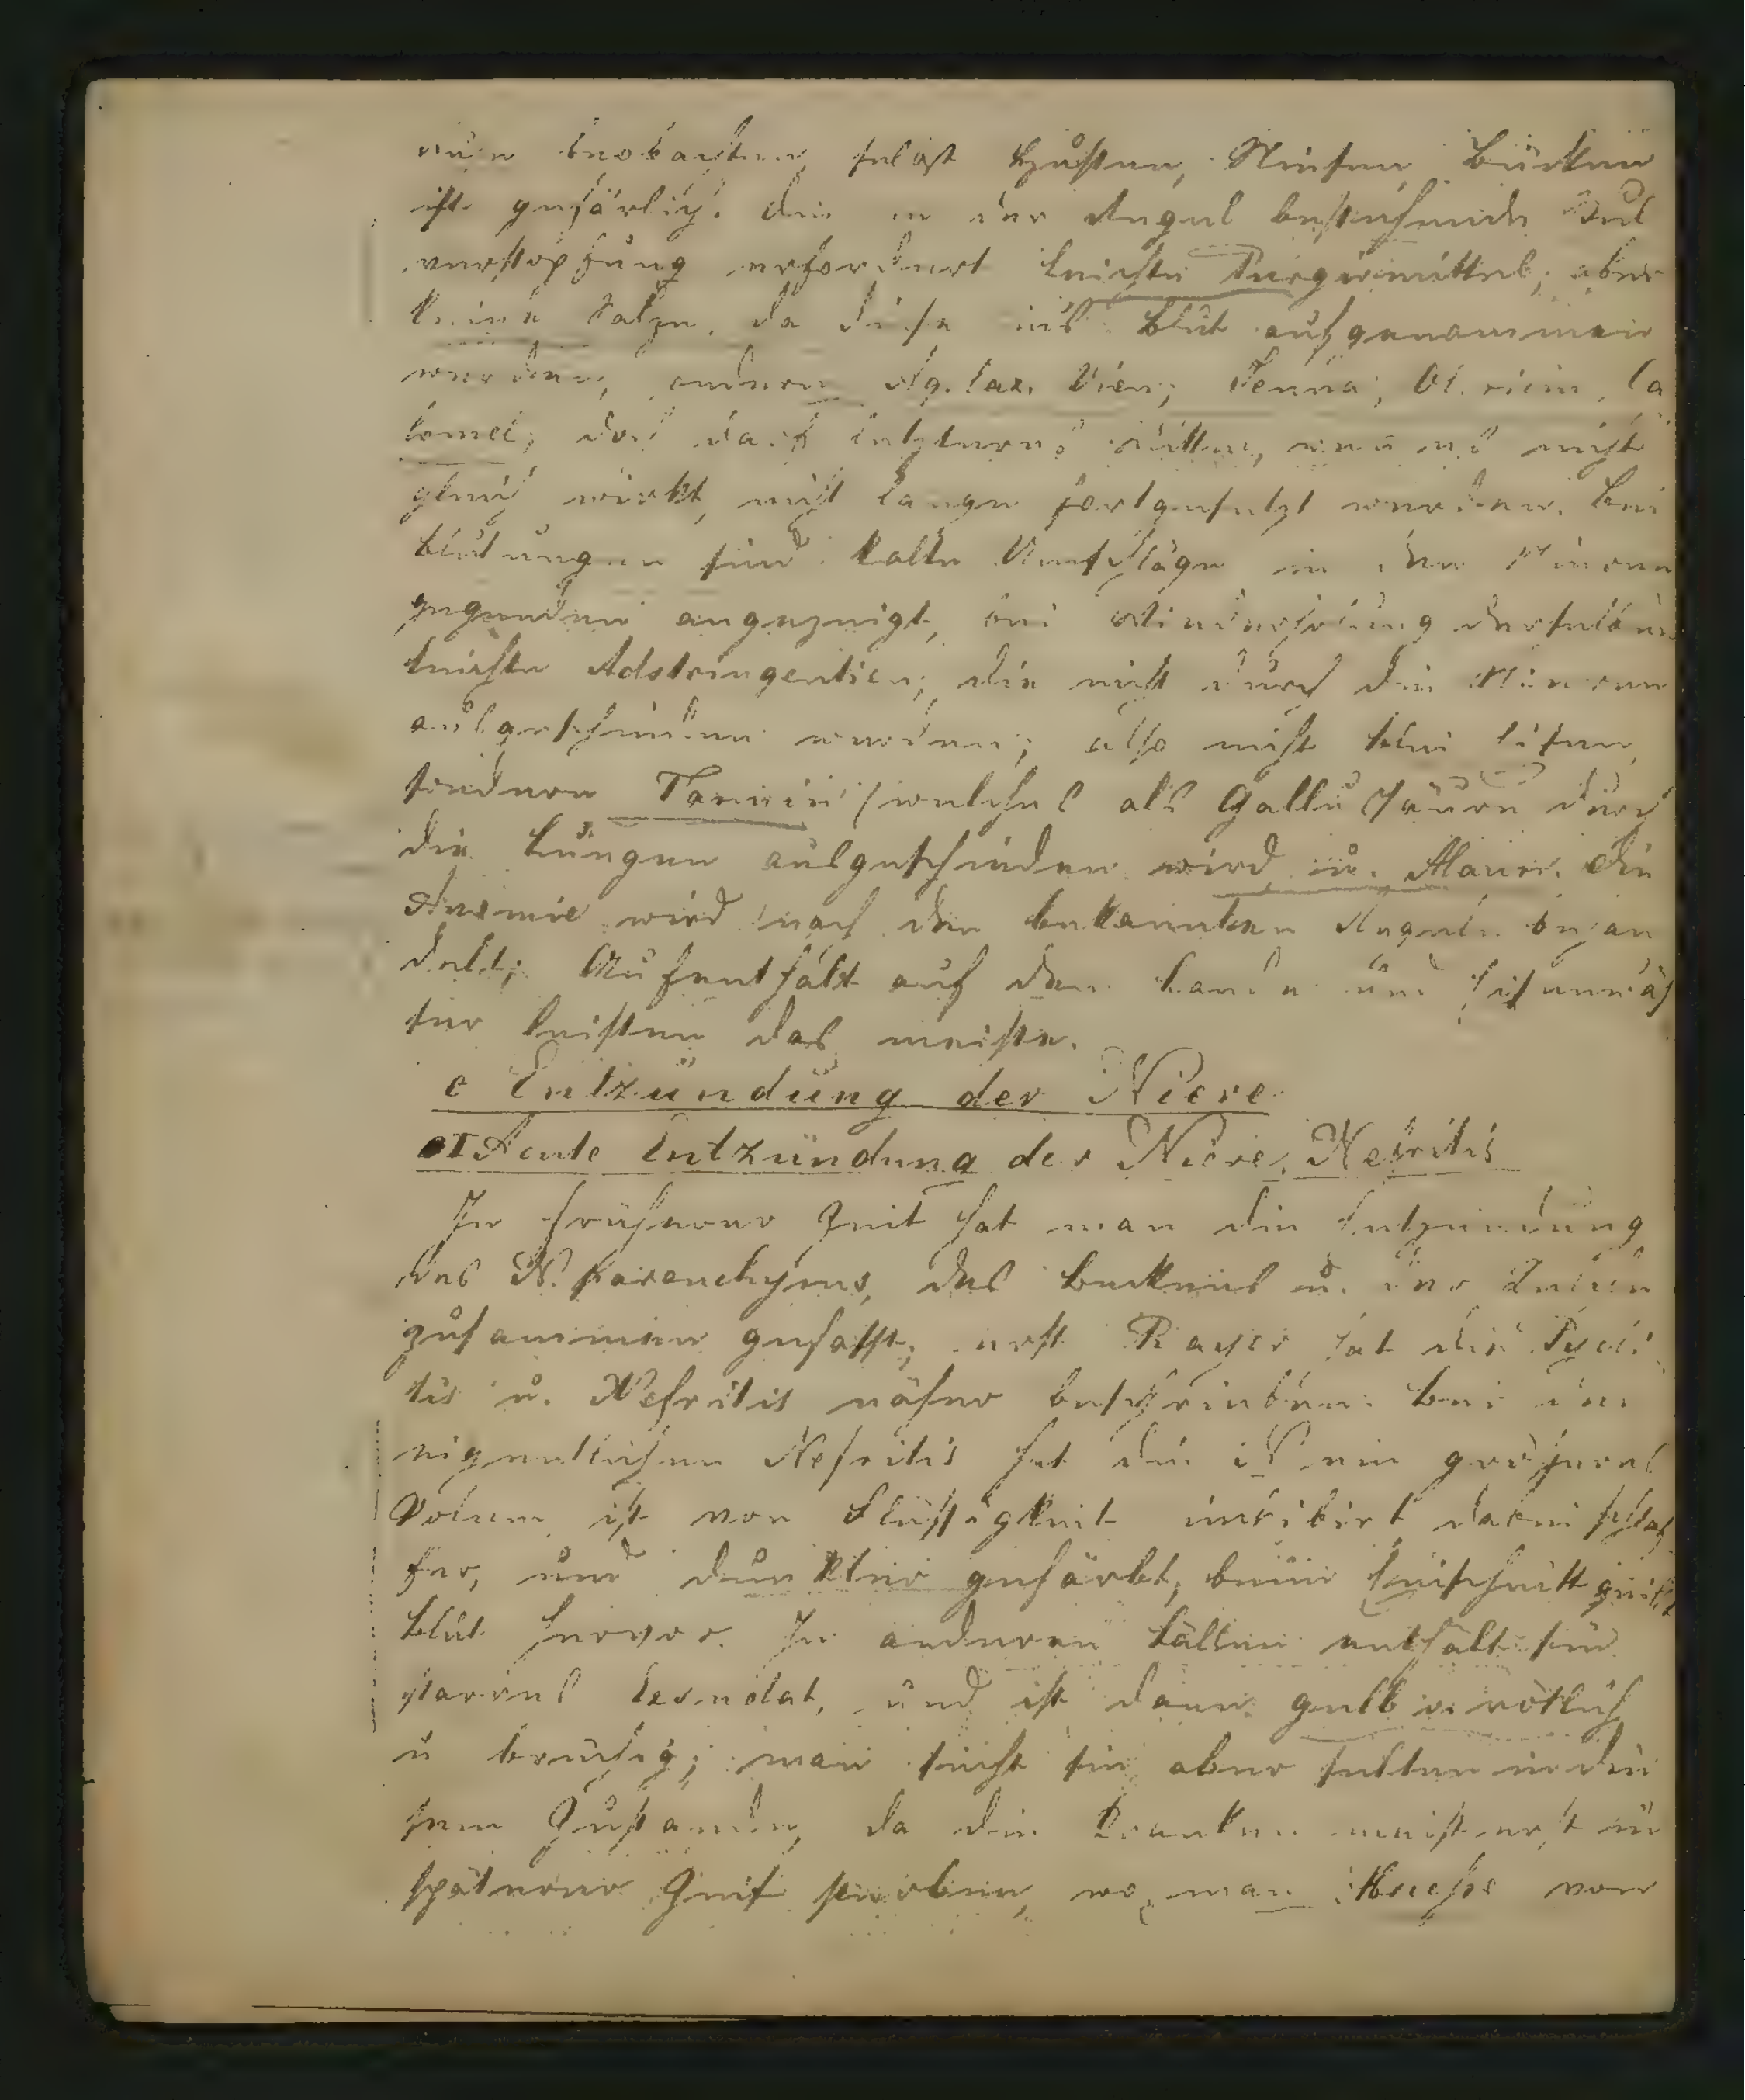 beobachten, selbst Husten, Niesen, Bücken
ist gefärlich. Die in der Regel bestehende Stul
verstopfung erfordert leichte Purgirmittel, aber
keine Salze, da diese ins Blut aufgenommen
werden, sondern Aq. lax. Vien; Senna; Ol. ricin, Ca
lomel; doch darf letzteres Mittel, wenn es nicht
gleich wirkt, nicht lange fortgesetzt werden. Bei
Blutungen sind kalte Umschläge in den Nieren
gegenden angezeigt, bei Wiederholung derselben
leichte Adstringentien, die nicht durch die Nieren
ausgeschieden werden; also nicht Blei
sondern Tannin /welches als Gallussäure durch
die Lungen ausgeschieden wird u. Alaun. Die
Anemie wird nach den bekannten Regeln behan
delt; Aufenthalt auf dem Lande und
ser leisten das meiste.
c Entzündung der Niere
I Acute Entzündung der Niere, Nefritis
In früherer Zeit hat man die Entzündung
des N. Parenchyms, des Beckens u. der
zusammen gefasst, erst Rayer hat die Pyeli
tis u. Nefritis näher beschrieben. Bei der
eigentlichen Nefritis hat die N ein größeres
Volum, ist von Flüssigkeit imbibirt dabei schlaf
fer, und dunkler gefärbt, beim Einschnitt quillt
Blut hervor. In anderen Fällen enthält sie
starres Exsudat, und ist dann gelb rötlich
u brüchig; man sieht sie aber selten in die
sem Zustande, da die Kranken meist erst in
späterer Zeit sterben, wo man Abscesse von